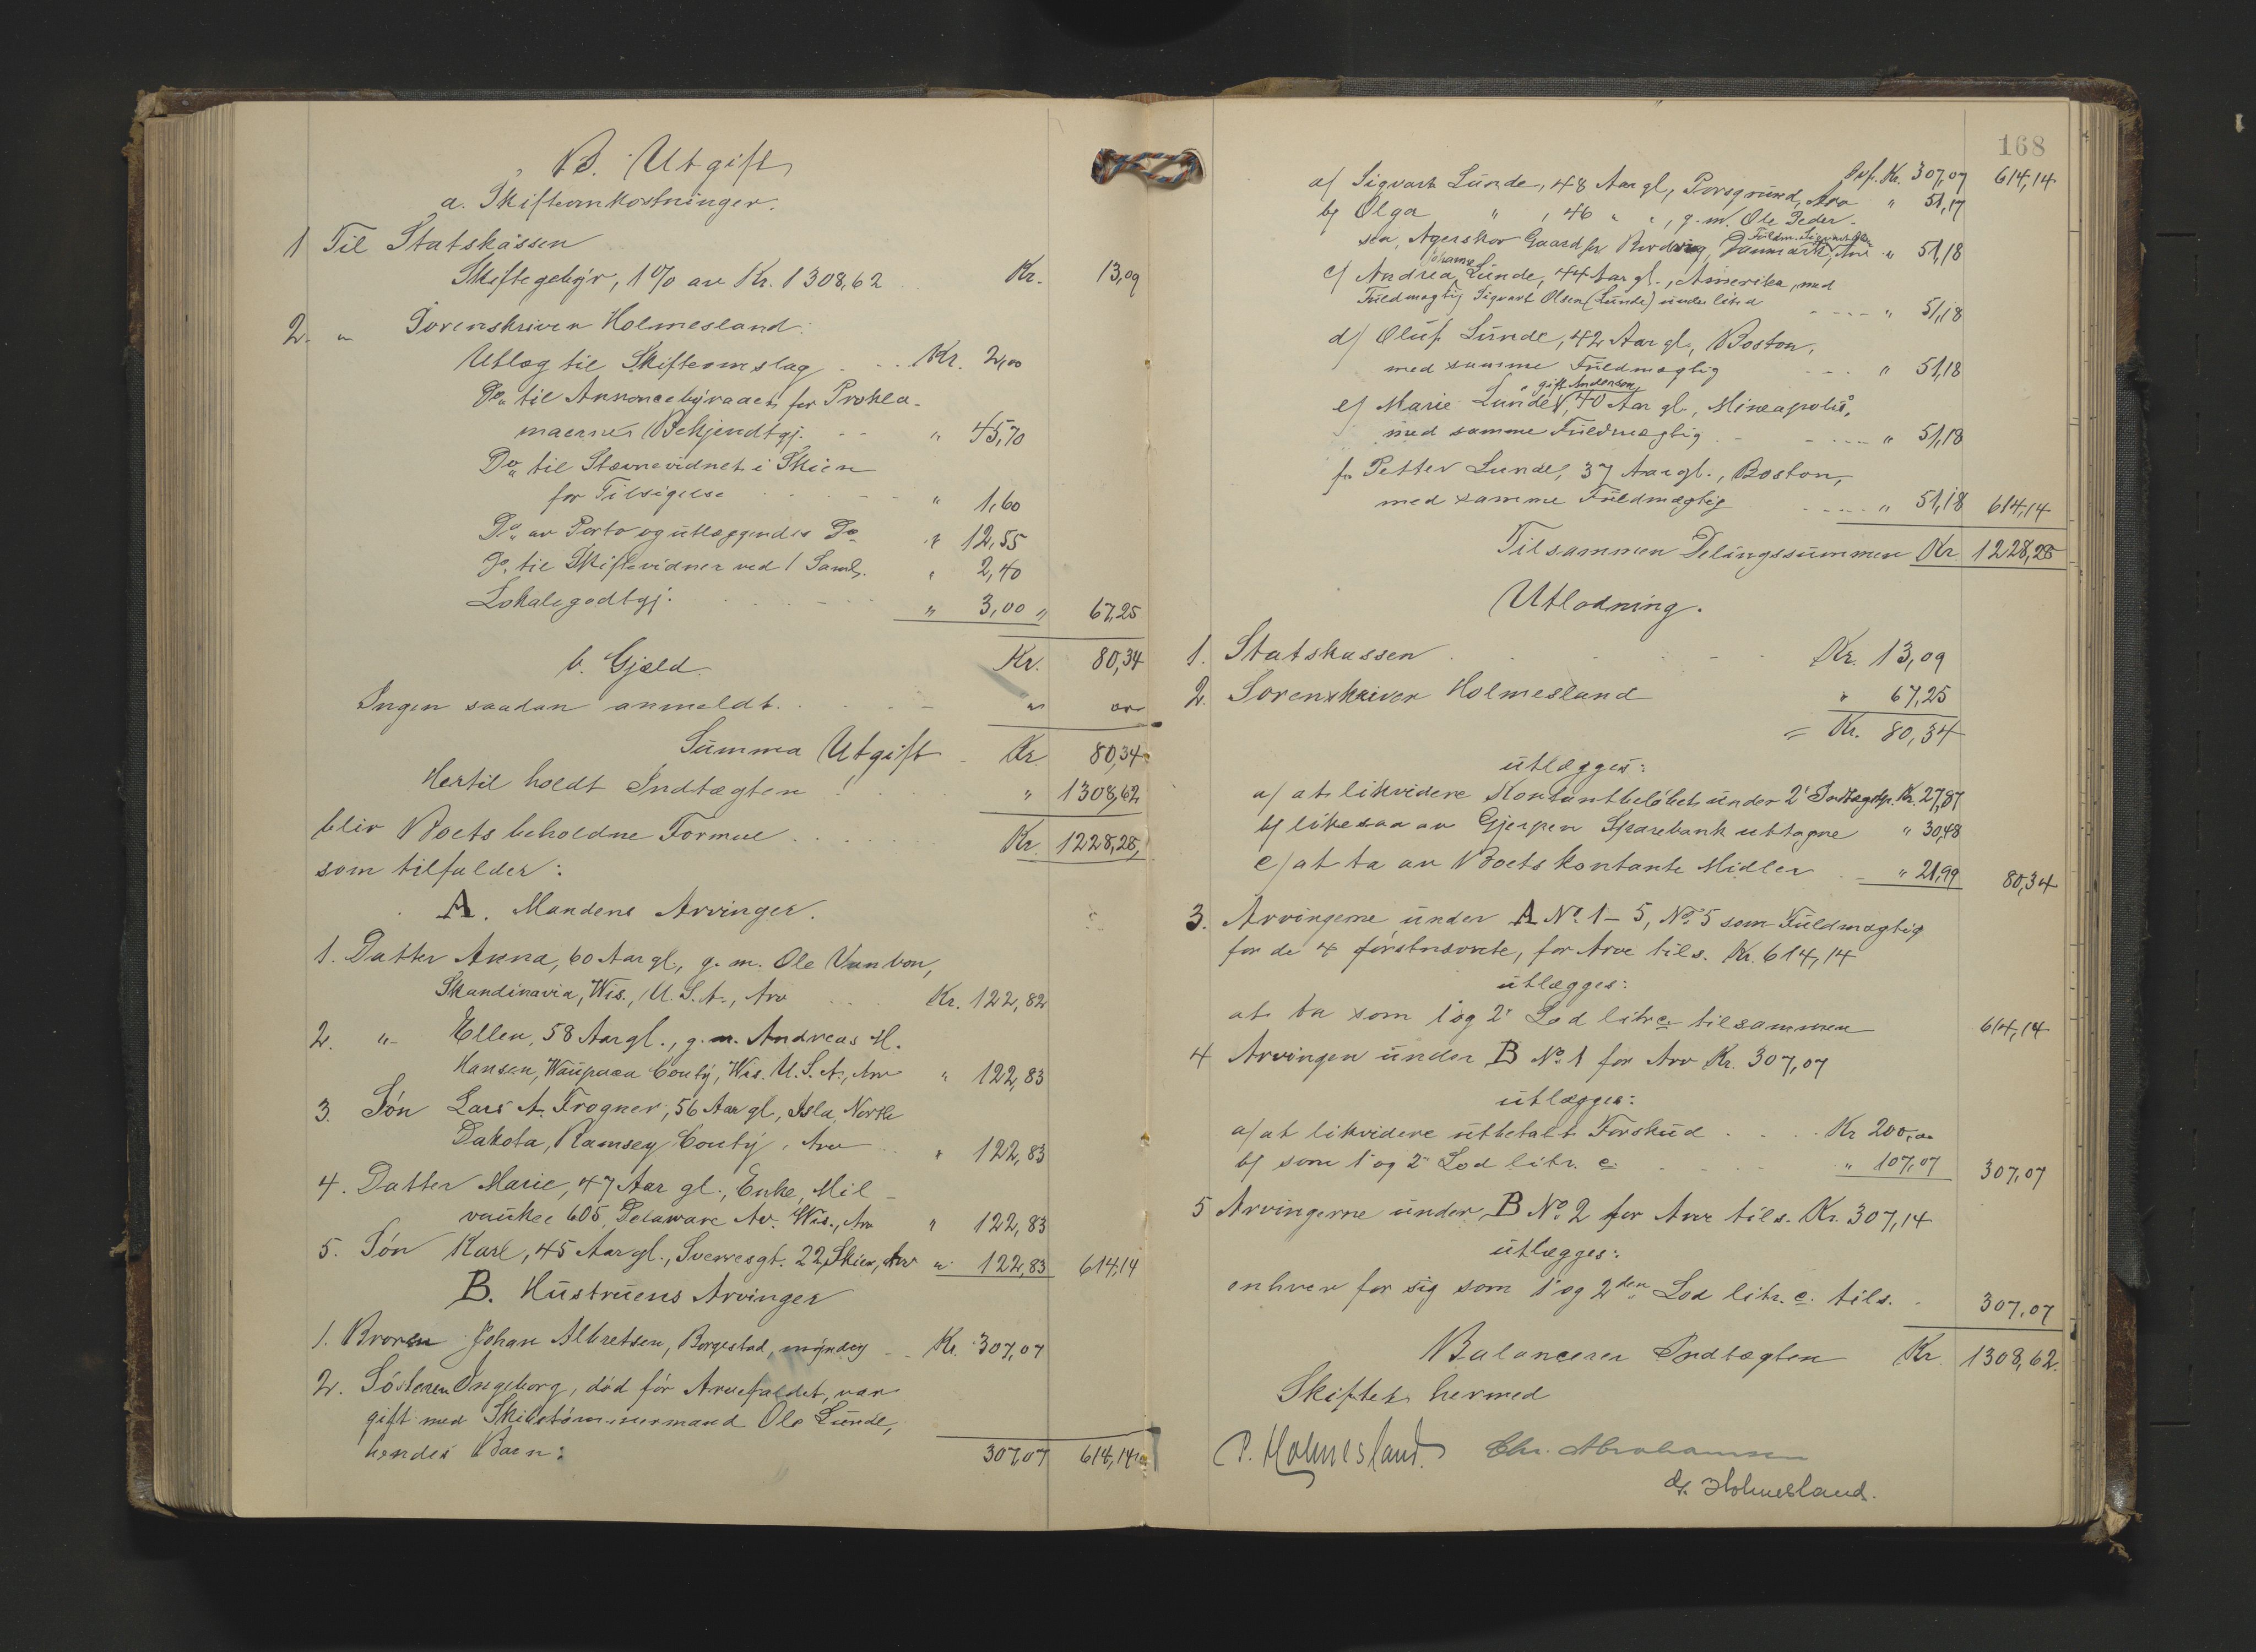 B. Utgift
a. Skifteomkostninger.
1 Til Statskassen
Skiftegebyr, 1% av Kr. 1308,62 Kr. 13,09
2. " Sorenskriver Holmesland:
Utlæg til Skifteomslag . . . Kr. 2,00
Do. til Annoncebyraaet for Prokla-
maernes Bekjendtgj. - - " 45,70
Do. til Stævnevidnet i Skien
for Tilsigelse . . . . - - " 1,60
Do. av Porto og utlæggendes Do " 12,55
Do. til Skiftevidner ved 1 Saml. " 2,40
Lokalegodtgj. . . . . - " 3,00 " 67,25
Kr. 80,34
b. Gjæld.
Ingen saadan anmeldt. . . . - " "
Summa Utgift - Kr. 80,34
Hertil holdt Indtægten . . . " 1308,62
blir Boets beholdne Formue . . . . Kr. 1228,28,
som tilfalder:
A. Mandens Arvinger.
1. Datter Anna, 60 Aar gl., g. m. Ole
Skandinavia, Wis., U.S.A., Arv Kr. 122,82
2. " Ellen, 58 Aar gl., g. m. Andreas H.
Hansen, Waupaca Couty, Wis. U.S.A., Arv " 122,83
3. Søn Lars A. Frogner, 56 Aar gl., Isla, North
Dakota, Ramsey Couty, Arv " 122,83
4. Datter Marie, 47 Aar gl., Enke, Mil-
vaukee 605 Delaware Av. Wis., Arv " 122,83
5. Søn Karl, 45 Aar gl., Sverresgt. 22, Skien, Arv " 122,83 614,14
B. Hustruens Arvinger
1. Broren Johan Albretsen, Borgestad, myndig - - Kr. 307,07
2. Søsteren Ingeborg, død før Arvefaldet, var
gift med Skibstømmermand Ole Lunde,
hendes Barn:
307,07 614,14
168
Ovf. Kr. 307,07 614,14
a/ Sigvart Lunde, 48 Aar gl., Porsgrund, Arv " 51,17
b/ Olga " , 46 " " , g. m. Ole Peder-
sen, Agerskov Gaard pr. Danmark, Arv " 51,18
Johanne
c/ Andrea Lunde, 44 Aar gl., Amerika, med
Fuldmægtig Sigvart Olsen (Lunde) under litr. a - - - - " 51,18
d/ Oluf Lunde, 42 Aar gl., Boston,
med samme Fuldmægtig - - - " 51,18
gift Anderson
e/ Marie Lunde, 40 Aar gl., Mineapolis,
med samme Fuldmægtig - - - - - " 51,18
f/ Petter Lunde, 37 Aar gl., Boston,
med samme Fuldmægtig - - - - " 51,18 614,14
Tilsammen Delingssummen Kr. 1228,28
Utlodning.
1. Statskassen . . . . - - Kr. 13,09
2. Sorenskriver Holmesland " 67,25
= Kr. 80,34
utlægges:
a/ at likvidere Kontantbeløbet under 2' Indtægtsp. Kr. 27,87
b/ likesaa av Gjerpen Sparebank uttagne " 30,48
c/ at ta av Boets kontante Midler - - " 21,99 80,34
3. Arvingerne under A No. 1-5, No. 5 som Fuldmægtig
for de 4 førstnævnte, for Arv tils. Kr. 614,14
utlægges:
at ta som 1' og 2' Lod litr. c. tilsammen 614,14
4 Arvingen under B No. 1 for Arv Kr. 307,07
utlægges:
a/ at likvidere utbetalt Forskud . . . . Kr 200,00
b/ som 1' og 2' Lod litr. c. - - - - " 107,07 307,07
5 Arvingerne under B No. 2 for Arv tils. Kr. 307,14
utlægges:
enhver for sig som 1' og 2den Lod litr. c. tils. . 307,07
Balancerer Indtægten Kr. 1308,62.
Skiftet hermed
P. Holmesland. Chr. Abrahamsen
Holmesland.